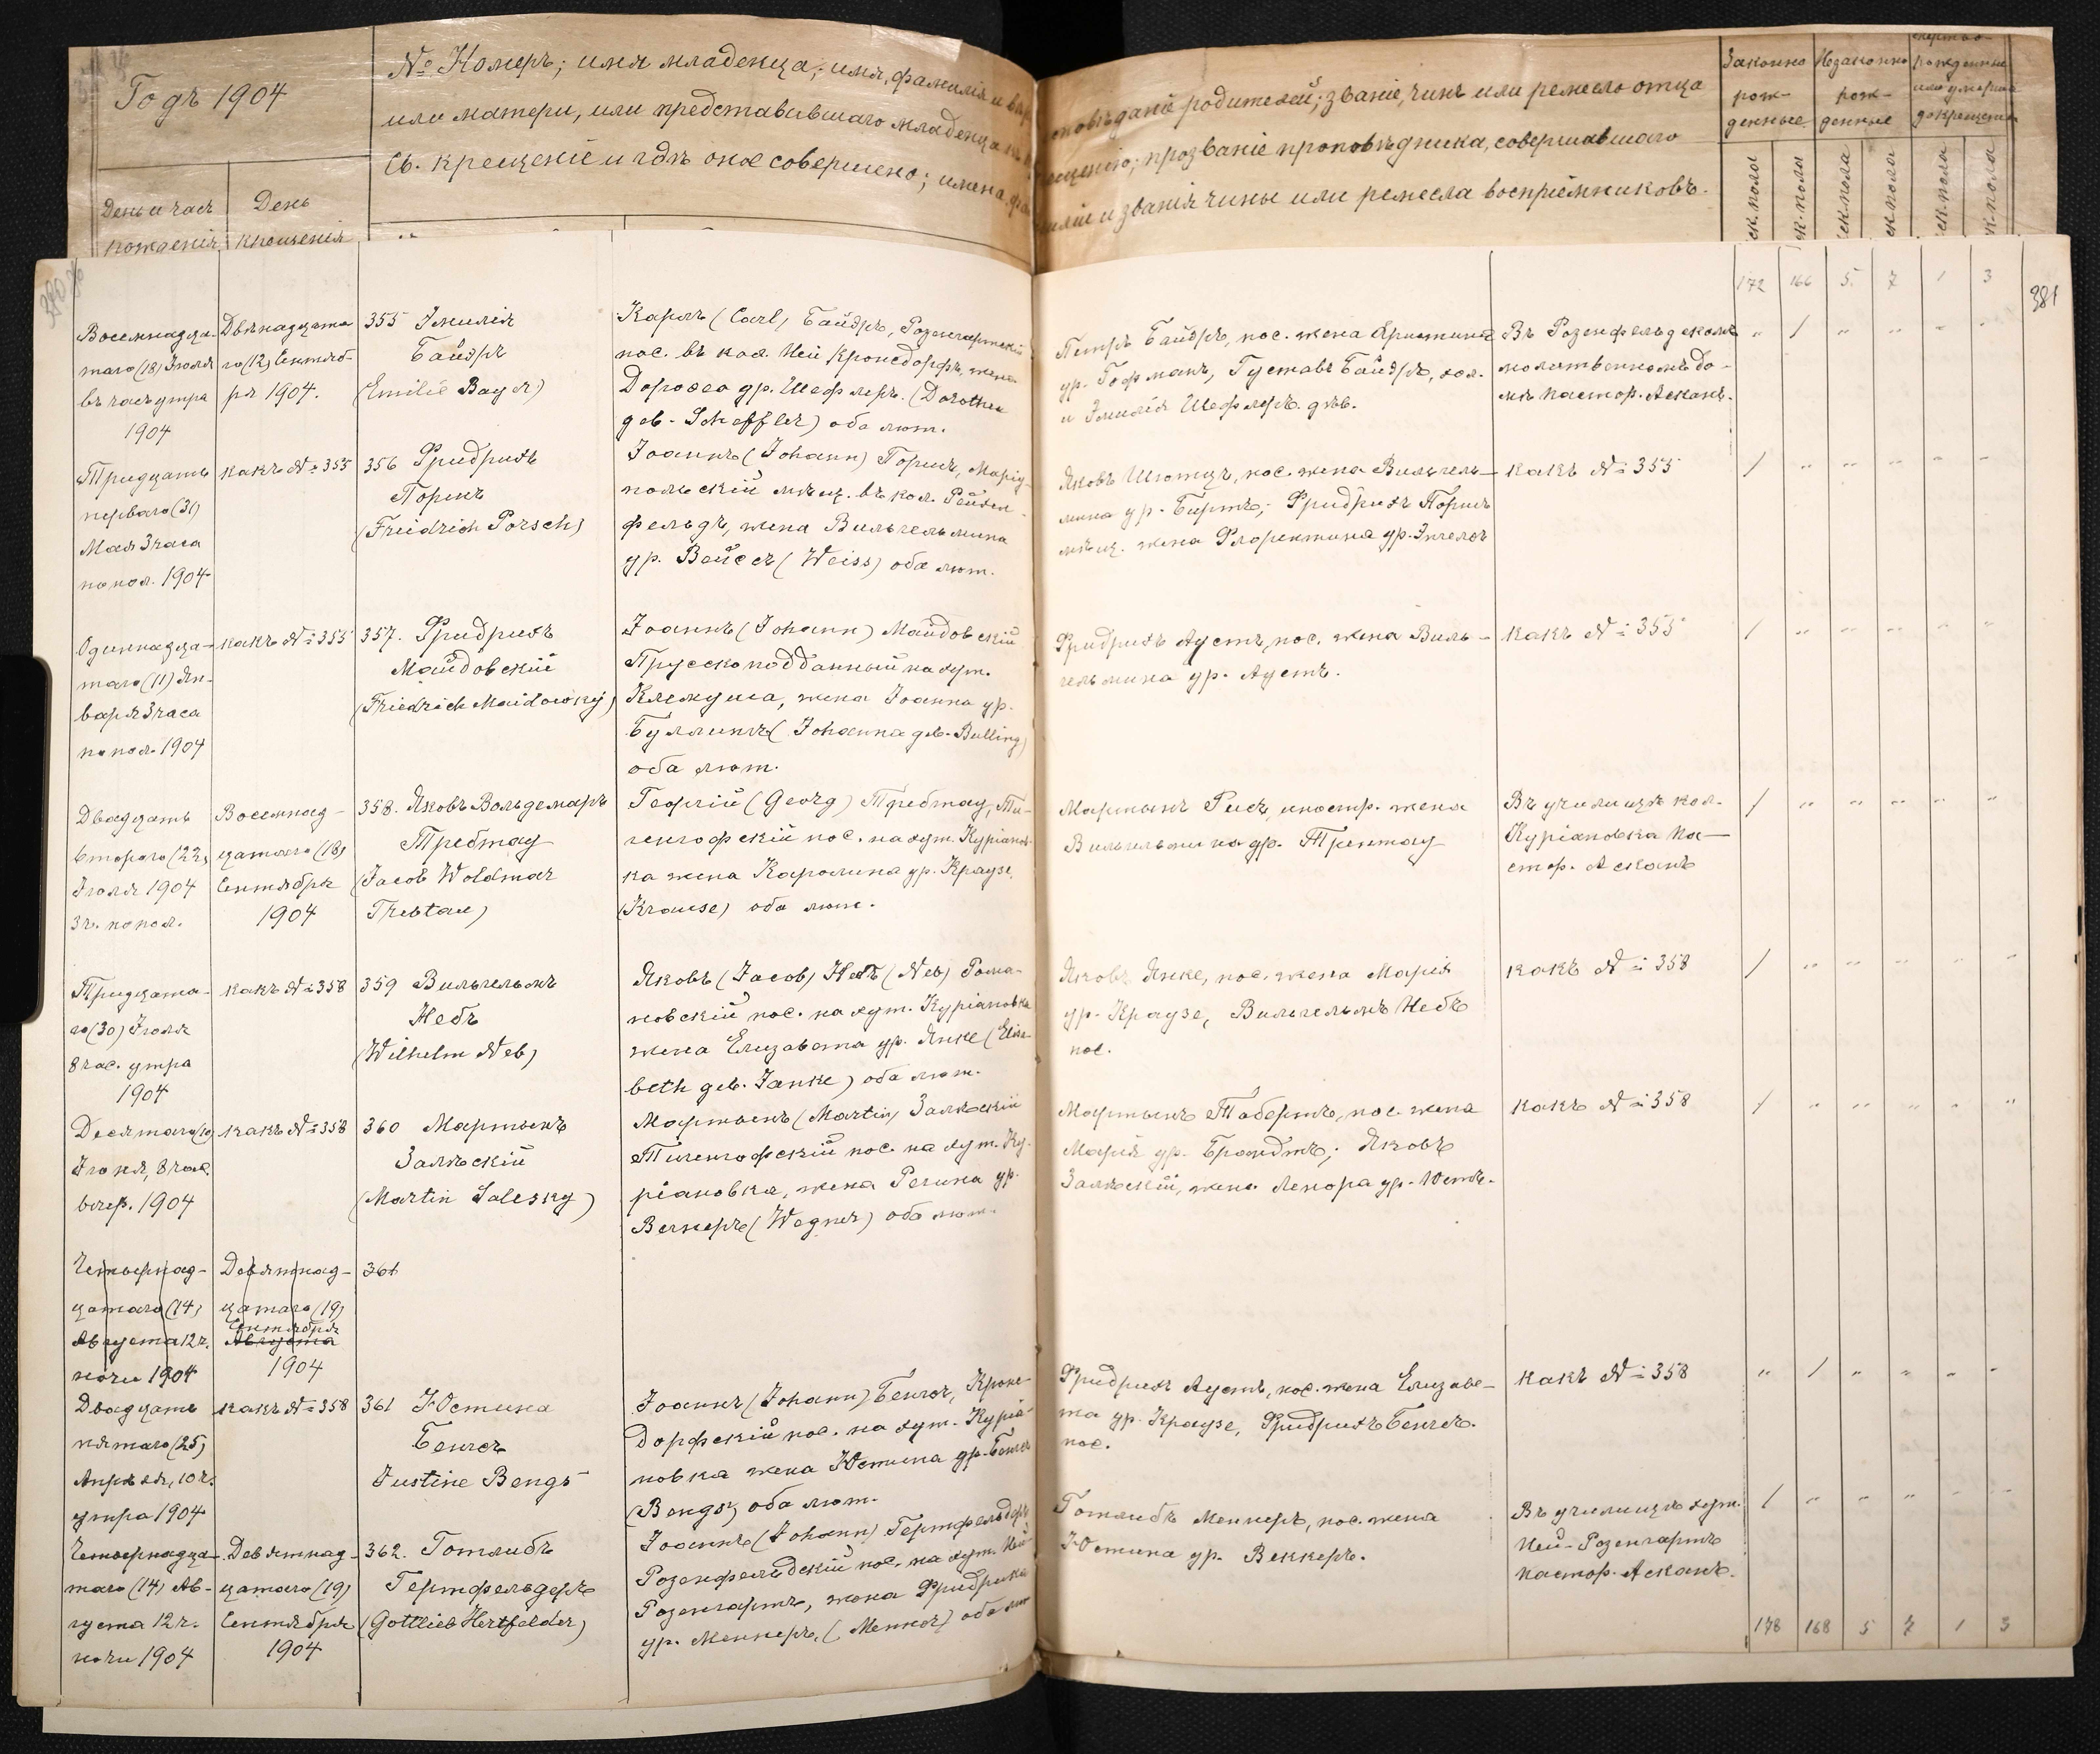 Годъ 1904
№ Номеръ; имя младенца; имя, фамилія и
или матери, или представившаго младенца
св. крещеніе и гдѣ оное совершено; имена
День и часъ рожденія
День крещенія
родителей; званіе, чинъ или ремесло отца
прозваніе проповѣдника, совершавшаго
и званія чины или ремесла воспріемниковъ.
Законно рож-
денные
Незаконно рож-
денные
рожденные
или умершіе
до крещенія
172 166 5 7 1 3
381
Восемнадца-
таго (18) Іюля
въ часъ утра
1904
Двѣнадцата
го (12) Сентяб-
ря 1904.
355 Эмилія
Байэръ
(Emilie Bayer)
Карлъ (Carl) Байэръ, Розенгартскій
пос. въ кол. Ней Кронсдорфъ, жена
Доротея ур. Шефлеръ. (Dorothea
geb. Scheffler) оба лют.
Петръ Байэръ, пос. жена Христина
ур. Гофманъ, Густавъ Байэръ, хол.
и Эмилія Шефлеръ. дѣв.
Въ Розенфельдскомъ
молитвенномъ до-
мѣ пастор. Асканъ.
" 1 " " " "
Тридцать
перваго (31)
Мая 3 часа
по пол. 1904
какъ № 355
356 Фридрихъ
Поршъ
(Friedrich Porsch)
Іоаннъ (Johann) Поршъ, Маріу-
польскій мѣщ. въ кол. Рейхен-
фельдъ, жена Вильгельмина
ур. Вейссъ (Weiss) оба лют.
Яковъ Шютцъ, пос. жена Вильгель-
мина ур. Биртъ; Фридрихъ Поршъ
мѣщ. жена Флорентина ур. Энгелсъ
какъ № 355
1 " " " " "
Одиннадца-
таго (11) Ян-
варя 3 часа
по пол. 1904
какъ № 355
357. Фридрихъ
Майдовскій
(Friedrich Maidowsky)
Іоаннъ (Johann) Майдовскій
Прусскоподданный на хут.
жена Іоанна ур.
Буллингъ (Johanna geb. Bulling)
оба лют.
Фридрихъ Аустъ, пос. жена Виль-
гельмина ур. Аустъ.
какъ № 355
1 " " " " "
Двадцать
второго (22)
Іюля 1904
3 ч. по пол.
Восемнад-
цатаго (18)
Сентября
1904
358. Яковъ Вольдемаръ
Требтау
(Jacob Woldmar
Trebtau)
Георгій (Georg) Требтау, Ти-
генгофскій пос. на хут. Куріанов-
ка жена Каролина ур. Краузе
(Krause) оба лют.
Мартынъ Рисъ, иностр. жена
Вильгельмина ур. Трептау
Въ училищѣ кол.
Куріановка па-
стор. Асканъ
1 " " " " "
Тридцата-
го (30) Іюля
8 час. утра
1904
какъ № 358
359 Вильгельмъ
Небъ
(Wilhelm Neb)
Яковъ (Jacob) Небъ (Neb) Рома-
новскій пос. на хут. Куріановка
жена Елизавета ур. Янке (Elisa-
beth geb. Janke) оба лют.
Яковъ Янке, пос. жена Марія
ур. Краузе, Вильгельмъ Небъ
пос.
какъ № 358
1 " " " " "
Десятаго (10)
Іюня, 8 час.
вечер. 1904
какъ № 358
360 Мартынъ
Залѣскій
(Martin Salesky)
Мартынъ (Martin) Залѣскій
Тигенгофскій пос. на хут. Ку-
ріановка, жена Регина ур.
Вегнеръ (Wegner) оба лют.
Мартынъ Табертъ, пос. жена
Марія ур. Брандтъ; Яковъ
Залѣскій, жена Ленора ур. Юстъ.
какъ № 358
1 " " " " "
Четырнад-
цатаго (14)
Августа 12 ч.
ночи 1904
Девятнад-
цатаго (19)
Сентября
Августа
1904
361
Двадцать
пятаго (25)
Апрѣля, 10 ч.
утра 1904
какъ № 358
361 Юстина
Бенгсъ
Justine Bengs
Іоаннъ (Johann) Бенгсъ, Кронс-
дорфскій пос. на хут. Куріа-
новка жена Юстина ур. Бенгсъ
(Bengs) оба лют.
Фридрихъ Аустъ, пос. жена Елизаве-
та ур. Краузе, Фридрихъ Бенгсъ.
пос.
какъ № 358
" 1 " " " "
Четырнадца-
таго (14) Ав-
густа 12 ч.
ночи 1904
Девятнад-
цатаго (19)
Сентября
1904
362. Готлибъ
Гертфельдеръ
(Gottlieb Hertfelder)
Іоаннъ (Johann) Гертфельдеръ
Розенфельдскій пос. на хут. Ней-
Розенгартъ, жена Фридрика
ур. Меннеръ, (Menner) оба лют
Готлибъ Меннеръ, пос. жена
Юстина ур. Веккеръ.
Въ училищѣ хут.
Ней-Розенгартъ
пастор. Асканъ.
1 " " " " "
178 168 5 7 1 3